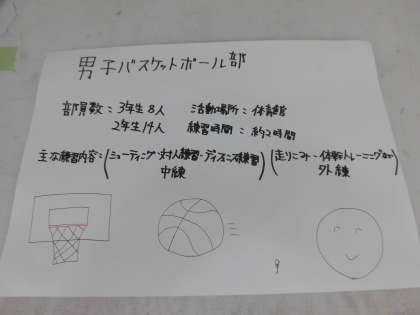 男子バスケットボール部
部員数：3年生8人　活動場所：体育館
2年生14人　練習時間：約2時間
主な練習内容：(シューティング・対人練習・ディフェンス練習)(走りこみ・体幹トレーニング)
中練　外練